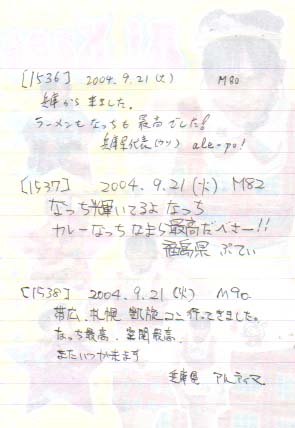 [1536] 2004.9.21(火) M80
兵庫から来ました。
ラーメンもなっちも最高でした!
兵庫県代表(ウソ) ale-po!
[1537] 2004.9.21(火) M82
なっち輝いてるよなっち
カレーなっちなまら最高だべさー!!
福島県 ぷてぃ
[1538] 2004.9.21(火) M90
帯広、札幌 凱旋コン行ってきました。
なっち最高、室蘭最高、
またいつか来ます
兵庫県 アルティマ